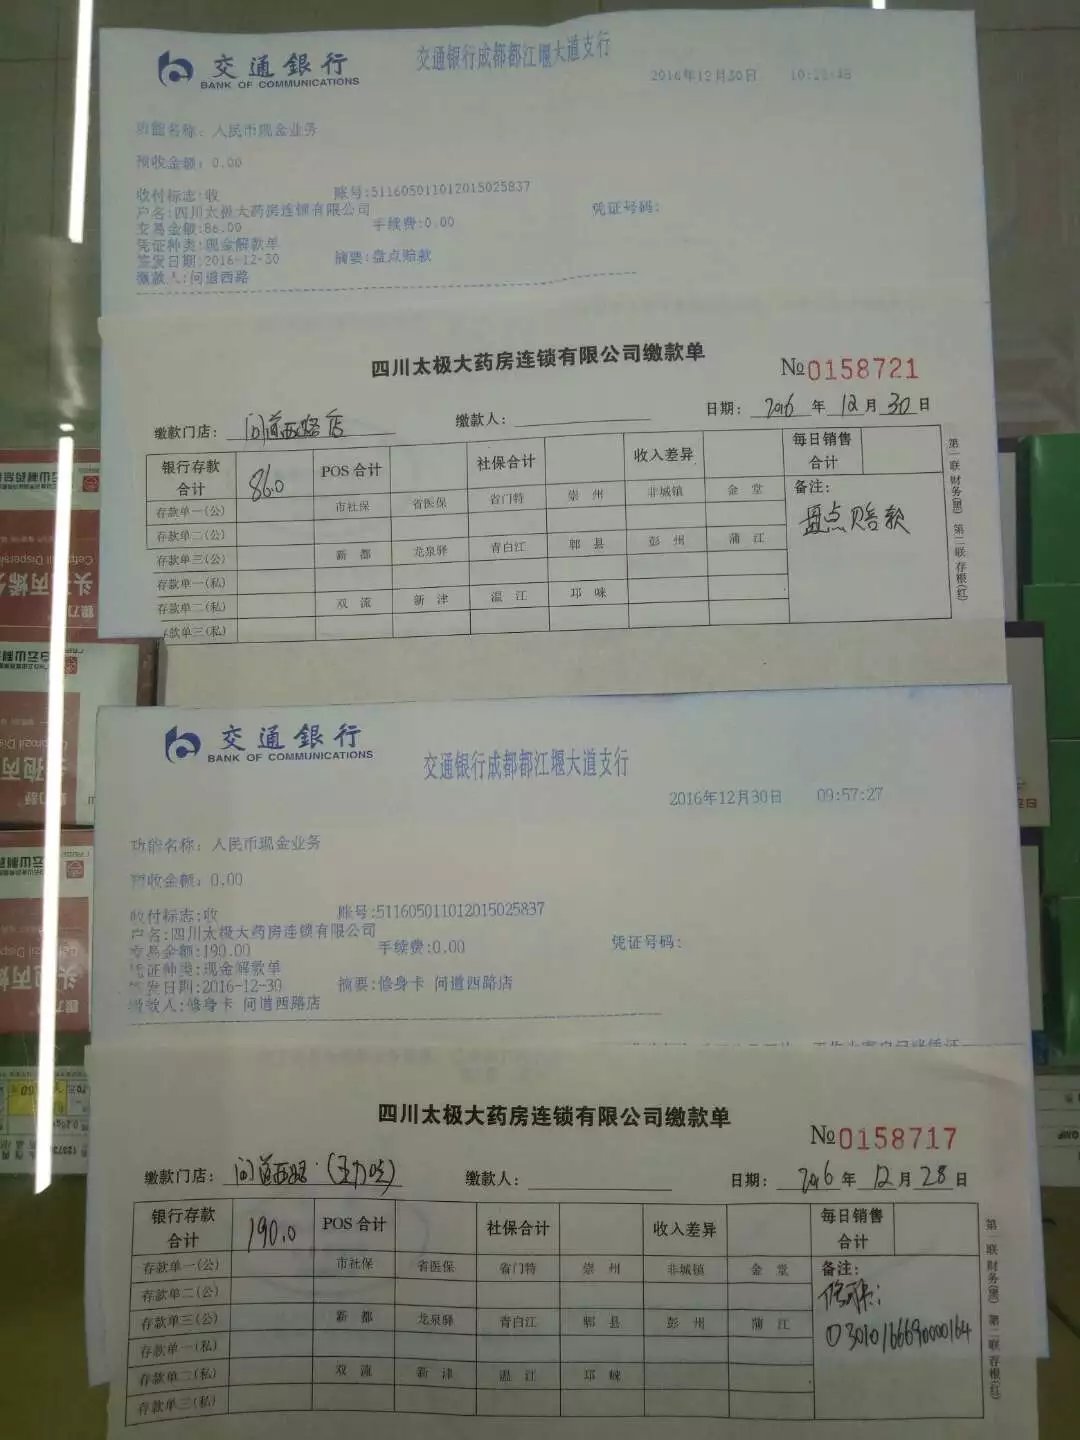 交通銀行
BANK OF COMMUNICATIONS
交通银行成都都江堰大道支行
2016年12月30日
功能名称：人民币现金业务
预收金额：0.00
收付标志:收 账号:511605011012015025837
户名:四川太极大药房连锁有限公司 凭证号码:
交易金额:86.00 手续费:0.00
凭证种类:现金解款单
签发日期:2016-12-30 摘要:盘点赔款
缴款人:问道西路
四川太极大药房连锁有限公司缴款单
№0158721
缴款门店: 问道西路店 缴款人: 日期: 2016 年 12 月 30 日
银行存款合计 86.0 POS合计 社保合计 收入差异 每日销售合计
存款单一(公) 市社保 省医保 省门特 崇州 非城镇 金堂 备注:
盘点赔款
存款单二(公)
存款单三(公) 新都 龙泉驿 青白江 郫县 彭州 蒲江
存款单一(私)
存款单二(私) 双流 新津 温江 邛崃
存款单三(私)
第一联财务(黑) 第二联存根(红)
交通銀行
BANK OF COMMUNICATIONS
交通银行成都都江堰大道支行
2016年12月30日 09:57:27
功能名称：人民币现金业务
预收金额：0.00
收付标志:收 账号:511605011012015025837
户名:四川太极大药房连锁有限公司 凭证号码:
交易金额:190.00 手续费:0.00
凭证种类:现金解款单
签发日期:2016-12-30 摘要:修身卡 问道西路店
缴款人:修身卡 问道西路店
四川太极大药房连锁有限公司缴款单
№0158717
缴款门店: 问道西路 缴款人: 日期: 2016 年 12 月 28 日
银行存款合计 190.0 POS合计 社保合计 收入差异 每日销售合计
存款单一(公) 市社保 省医保 省门特 崇州 非城镇 金堂 备注:
存款单二(公)
存款单三(公) 新都 龙泉驿 青白江 郫县 彭州 蒲江
存款单一(私)
存款单二(私) 双流 新津 温江 邛崃
存款单三(私)
第一联财务(黑) 第二联存根(红)